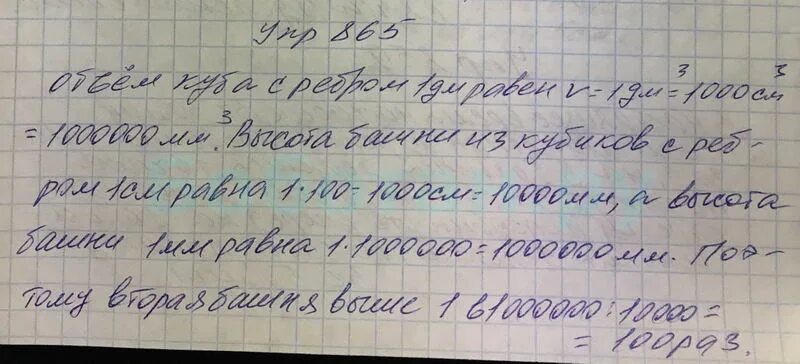 Упр 865
объём куба с ребром 1дм равен V=1дм³=1000см³
=1000000мм³. Высота башни из кубиков с реб-
ром 1см равна 1·100=1000см=10000мм, а высота
башни 1мм равна 1·1000000=1000000мм. Поэ-
тому вторая башня выше 1 в1000000:10000=
=100раз.